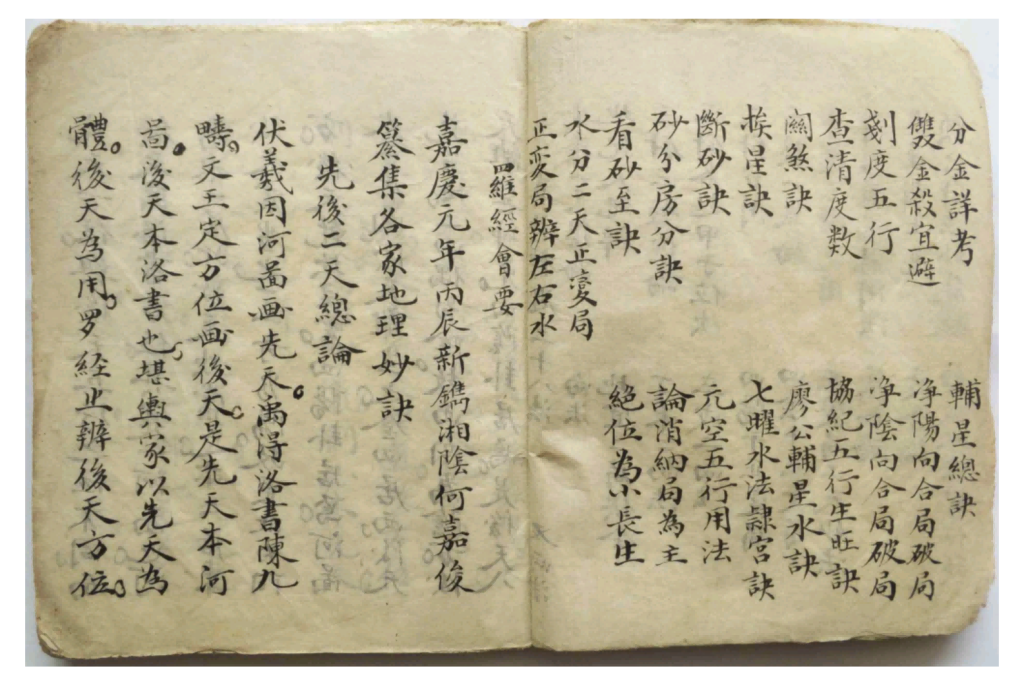 分金詳考 輔星總訣
雙金殺宜避 净陽向合局破局
剗度五行 净陰向合局破局
查清度数 協紀五行生旺訣
關煞訣 廖公輔星水訣
挨星訣 七曜水法隷宮訣
斷砂訣 元空五行用法
砂分房分訣 論消納局為主
看砂至訣 絕位為小長生
水分二天正変局
正变局辨左右水
羅經會要
嘉慶元年丙辰新鐫湘陰何嘉俊
纂集各家地理妙訣
先後二天總論
伏羲因河啚画先天。禹得洛書陳九
疇。文王定方位画後天。是先天本河
啚。後天本洛書也。堪輿家以先天為
體。後天為用。罗経止辨後天方位。